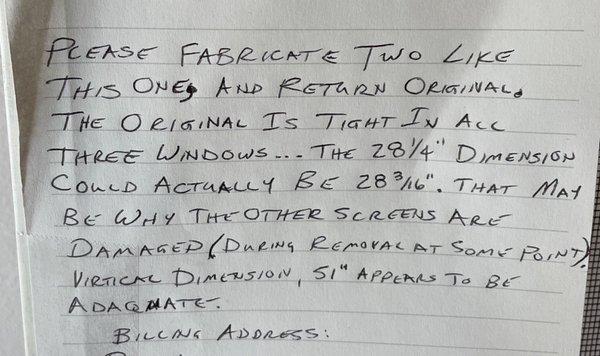 PLEASE FABRICATE TWO LIKE
THIS ONE, AND RETURN ORIGINAL.
THE ORIGINAL IS TIGHT IN ALL
THREE WINDOWS... THE 28 1/4" DIMENSION
COULD ACTUALLY BE 28 3/16". THAT MAY
BE WHY THE OTHER SCREENS ARE
DAMAGED (DURING REMOVAL AT SOME POINT).
VIRTICAL DIMENSION, 51" APPEARS TO BE
ADAQUATE.
BILLING ADDRESS: